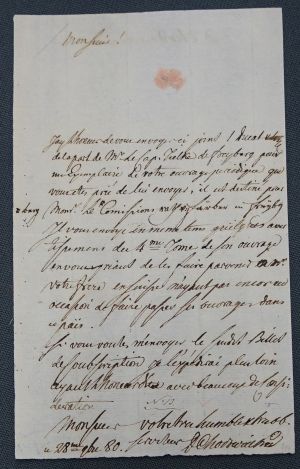 Monsieur!
J'ay l'honneur de vous envoyer ci joint 1 Ducat
de la part de Mr. le Cap. Tielke de Freyberg pour
un Exemplaire de votre ouvrage que
vous etes prié de lui envoyer, il est destiné pour
Mons. le Comissions in Freyberg
Il vous envoye en meme tems quelques aver
tissemens du 4me Tome de son ouvrage
en vous priant de les faire parvenir a Mr.
votre Frere en n'ayant pas encore eu
occasion de faire passer ses ouvrages dans
ce païs.
Si vous voulez m'envoyer le susdit Billet
de Souscription je l'expédierai plus loin
ayant l'honneur d'etre avec beaucoup de Consi
deration
Monsieur
votre tres humble & tres ob.
serviteur
28 80.